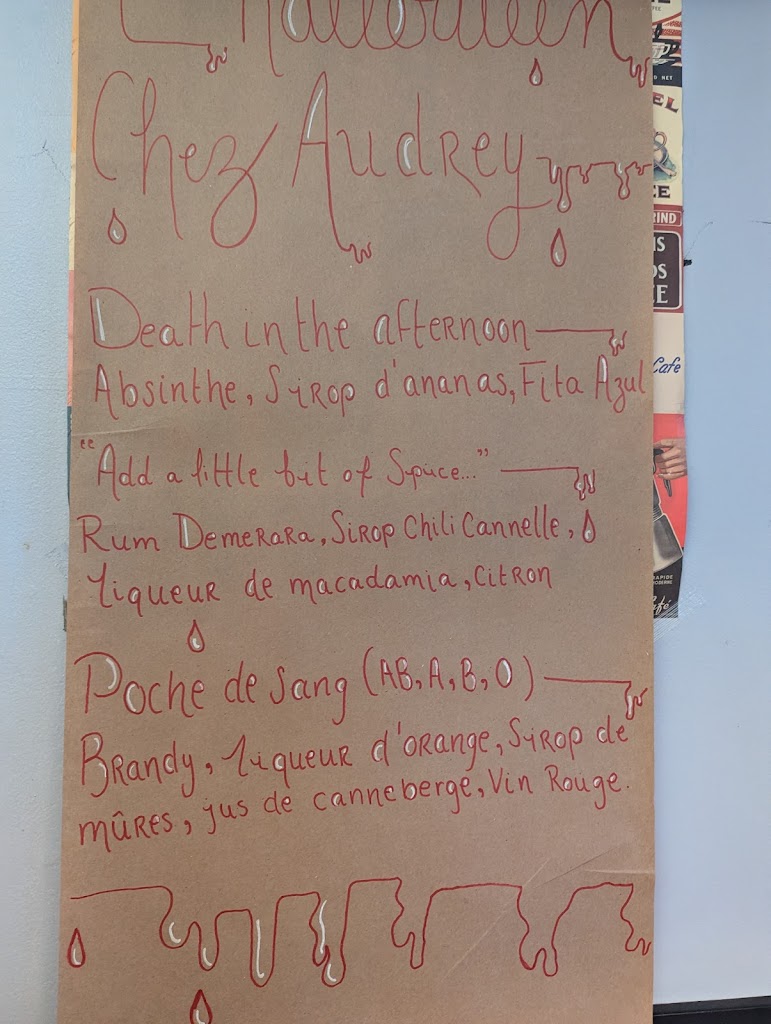 L'halloween
Chez Audrey
Death in the afternoon
Absinthe, Sirop d'ananas, Fita Azul
"Add a little bit of Spice..."
Rum Demerara, Sirop Chili Cannelle,
liqueur de macadamia, Citron
Poche de sang (AB, A, B, O)
Brandy, liqueur d'orange, Sirop de
mûres, jus de canneberge, Vin Rouge.
D NET
EL
EE
RIND
IS
DS
EE
Cafe
RAPIDE
Café